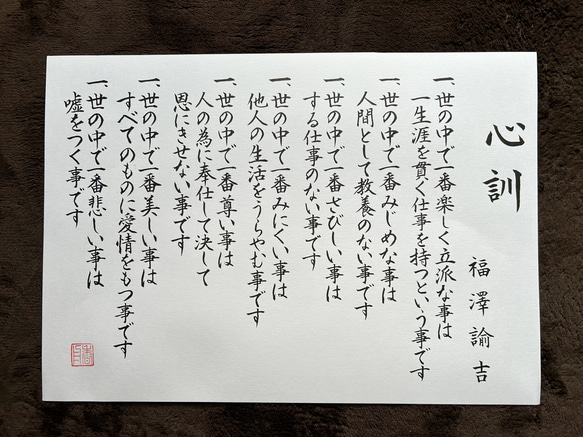 心訓
福澤諭吉
一、世の中で一番楽しく立派な事は
一生涯を貫く仕事を持つという事です
一、世の中で一番みじめな事は
人間として教養のない事です
一、世の中で一番さびしい事は
する仕事のない事です
一、世の中で一番みにくい事は
他人の生活をうらやむ事です
一、世の中で一番尊い事は
人の為に奉仕して決して
恩にきせない事です
一、世の中で一番美しい事は
すべてのものに愛情をもつ事です
一、世の中で一番悲しい事は
嘘をつく事です